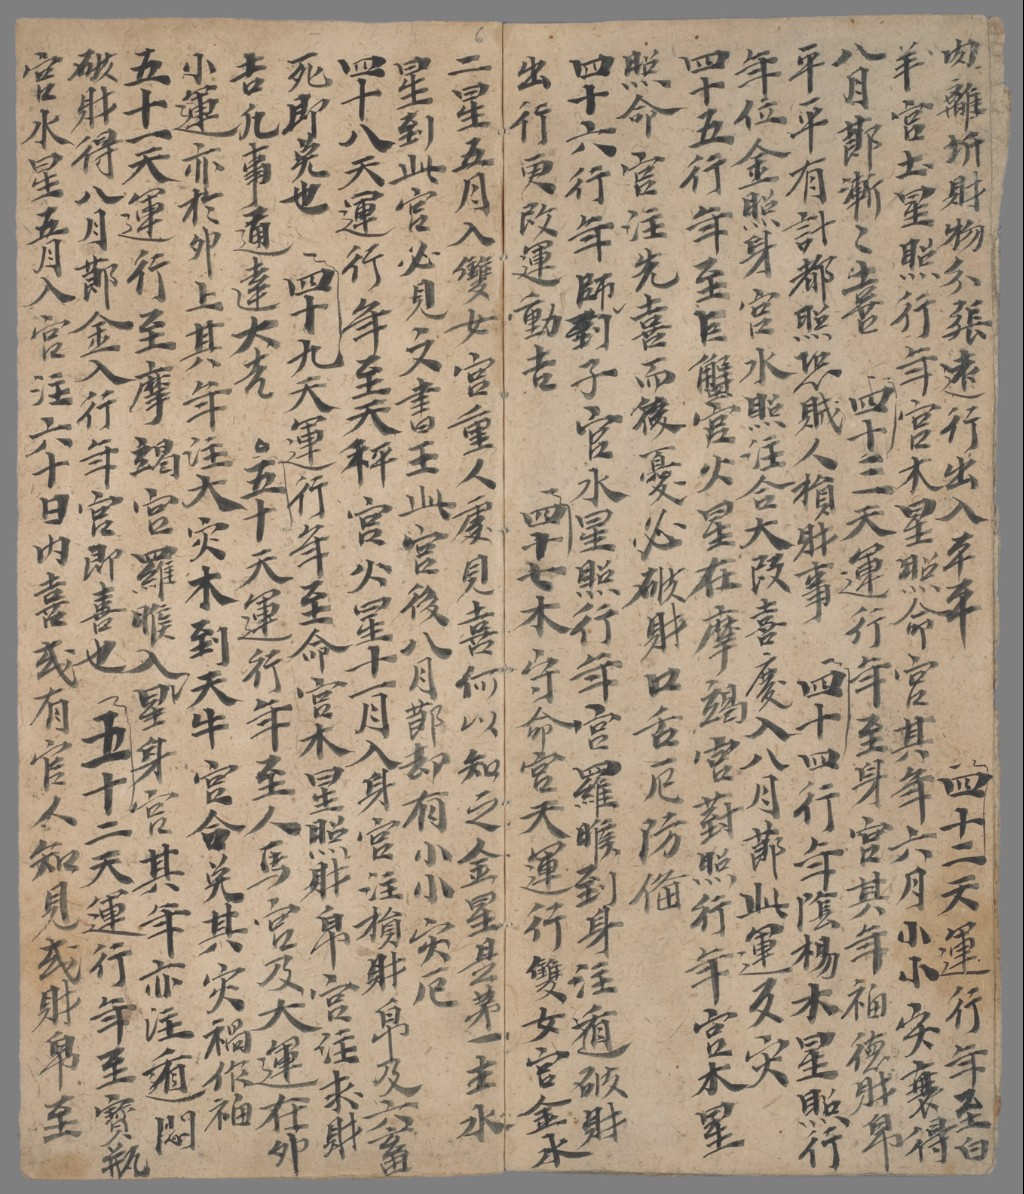 離折財物分張遠行出入平平 四十二天運行年至白
羊宮土星照行年宮木星照命宮其年六月小小灾襄得
八月節漸〻吉喜 四十三天運行年至身宮其年福德財帛
平平有計都照恐賊人損財事 四十四行年陰楊木星照行
年位金照身宮水照注合大改喜慶入八月節此運及灾
四十五行年至巨蟹宮火星在摩竭宮對照行年宮木星
照命宮注先喜而後憂必破財口舌厄防俻
四十六行年師子宮水星照行年宮羅睺到身注逎破財
出行更改運動吉 四十七木守命宮天運行雙女宮金水
二星五月入雙女宮重人慶見喜何以知之金星是第一主水
星到此宮必見文書王此宮後八月節却有小小灾厄
四十八天運行年至天秤宮火星十一月入身宮注損財帛及六畜
死即免也 四十九天運行年至命宮木星照財帛宮注求財
吉凡事通達大吉 五十天運行年至人馬宮及大運在卯
小運亦於卯上其年注大灾木到天牛宮合免其灾禍作福
五十一天運行至摩竭宮羅睺入星身宮其年亦注逎悶
破財得八月節金入行年宮即喜也 五十二天運行年至寶瓶
宮水星五月入宮注六十日內喜或有官人知見或財帛至